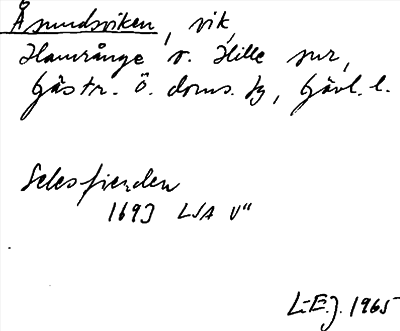 Åsundsviken, vik,
Hamrånge o. Hille snr,
Gästr. Ö. doms. tg, Gävl. l.
Selesfienden
1693 LSA V"
L-E.J. 1965